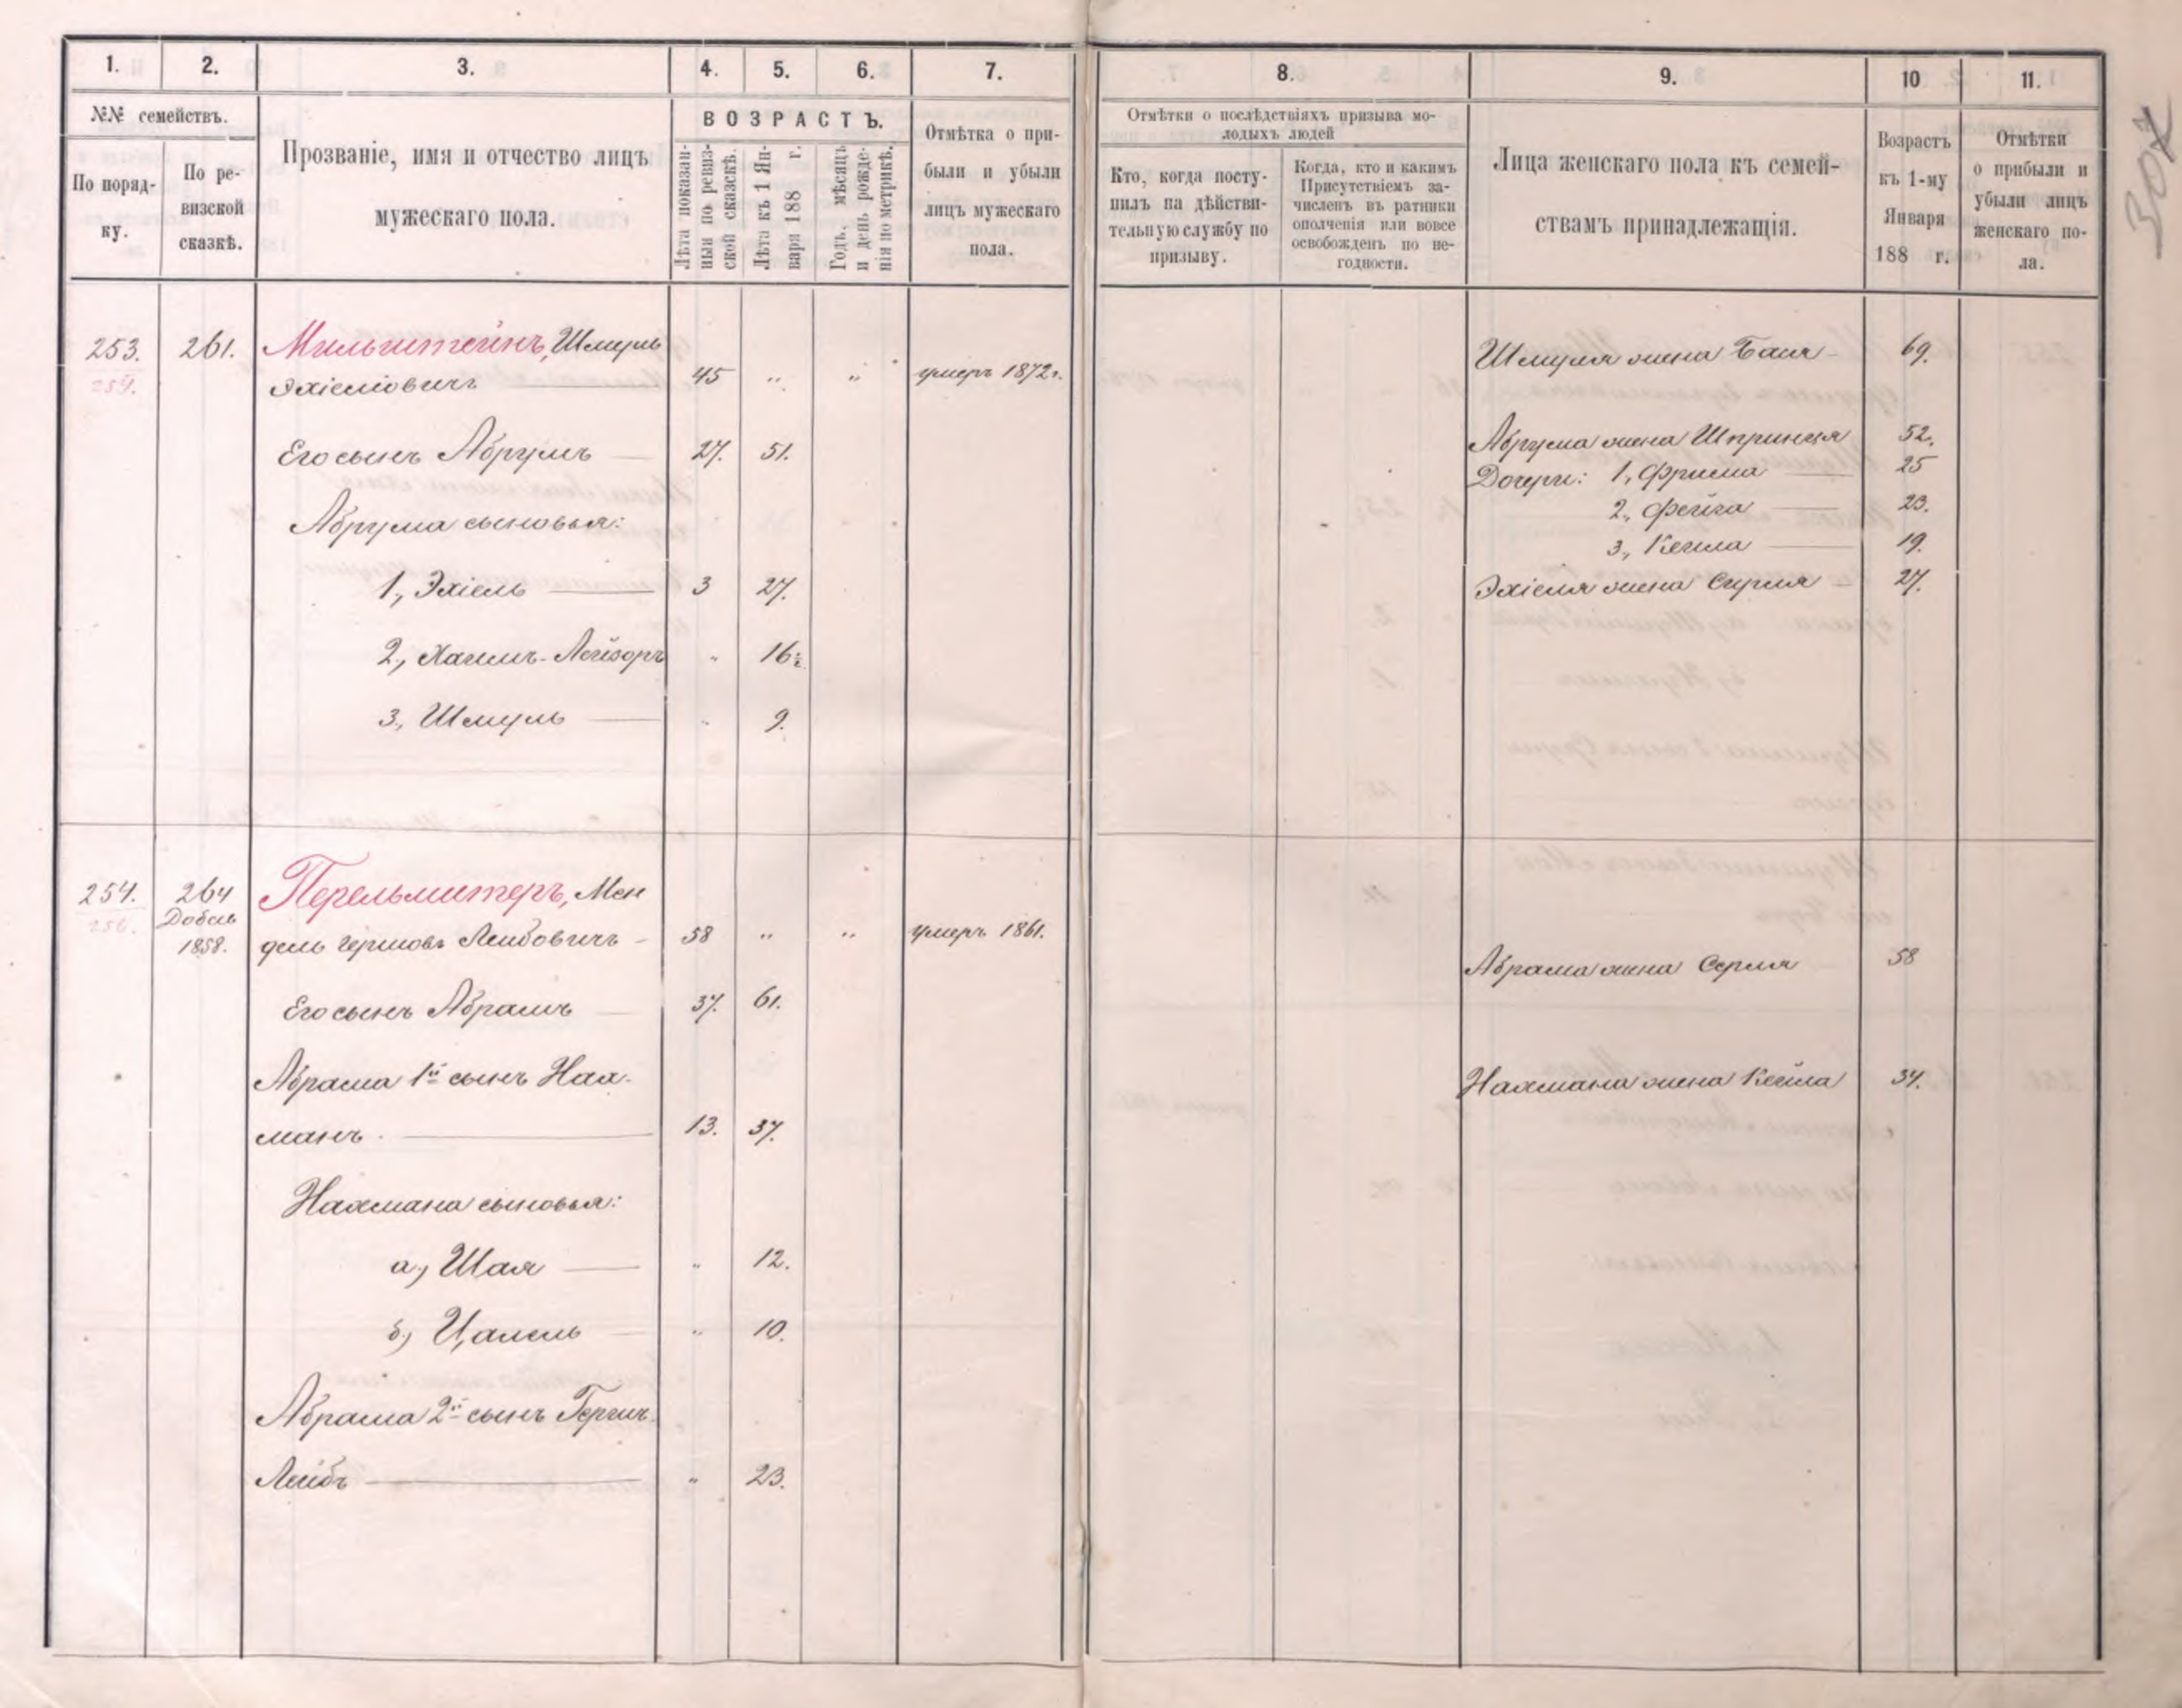 1. 2. 3. 4. 5. 6. 7. 8. 9. 10 11.
№№ семействъ.
По поряд-
ку.
По ре-
визской
сказкѣ.
Прозваніе, имя и отчество лицъ
мужескаго пола.
ВОЗРАСТЪ.
Лѣта показан-
ныя по ревиз-
ской сказкѣ.
Лѣта къ 1 Ян-
варя 188 г.
Годъ, мѣсяцъ
и день рожде-
нія по метрикѣ.
Отмѣтка о при-
были и убыли
лицъ мужескаго
пола.
Отмѣтки о послѣдствіяхъ призыва мо-
лодыхъ людей
Кто, когда посту-
пилъ на дѣйстви-
тельную службу по
призыву.
Когда, кто и какимъ
Присутствіемъ за-
численъ въ ратники
ополченія или вовсе
освобожденъ по не-
годности.
Лица женскаго пола къ семей-
ствамъ принадлежащія.
Возрастъ
къ 1-му
Января
188 г.
Отмѣтки
о прибыли и
убыли лицъ
женскаго по-
ла.
307
253. 261. Мильштейнъ, Шмуль
254. Эхіеліовичъ 45 " " умеръ 1872 г.
Его сынъ Абрумъ 27. 51.
Абрума сыновья:
1, Эхіель 3 27.
2, Хаимъ-Лейзоръ " 16½
3, Шмуль " 9.
Шмуля жена Бася 69.
Абрума жена Шпринця 52.
Дочери: 1, Фрима 25
2, Фейга 23.
3, Кейла 19.
Эхіеля жена Сурля 27.
254. 264 Перельмитеръ, Мен
256. Добав
1858. дель Гершовъ Лейбовичъ 58 " " умеръ 1861.
Его сынъ Абрамъ 37. 61.
Абрама 1й сынъ Нах-
манъ 13. 37.
Нахмана сыновья:
а, Шая " 12.
б, Цалель " 10.
Абрама 2й сынъ Гершъ
Лейбъ " 23.
Абрама жена Серля 58
Нахмана жена Кейла 34.